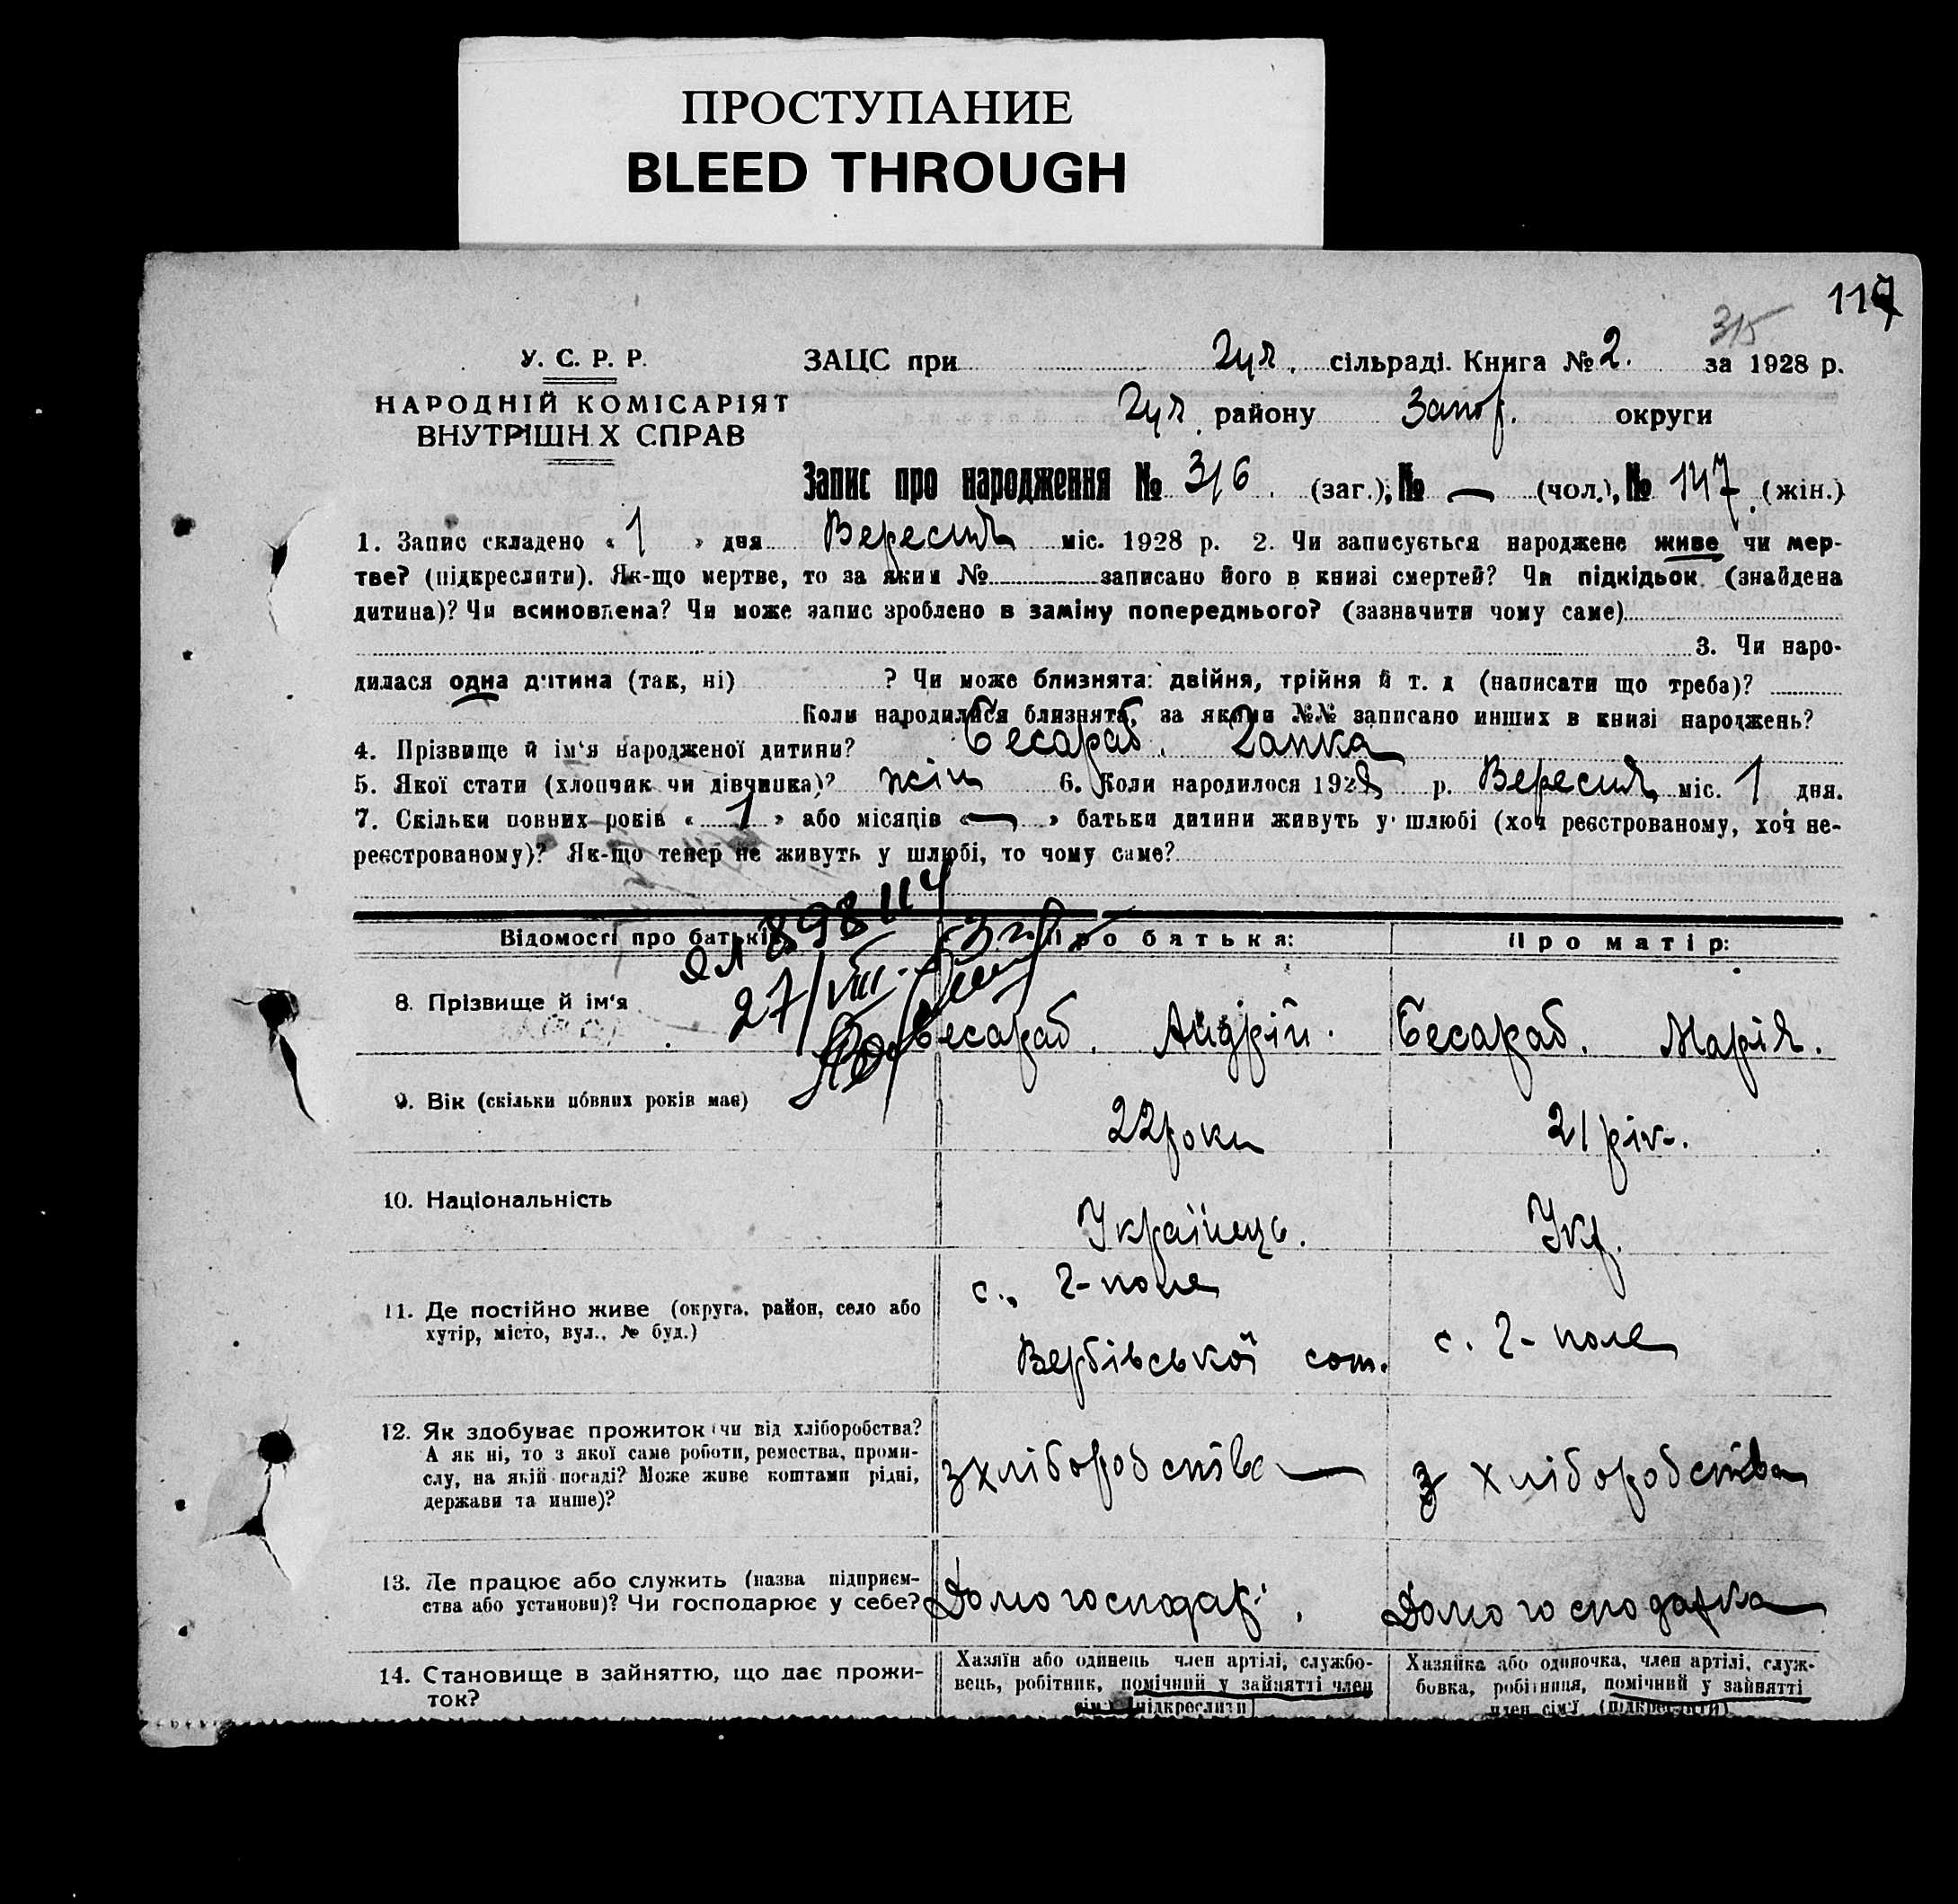 ПРОСТУПАНИЕ
BLEED THROUGH
117
315
У. С. Р. Р.
НАРОДНІЙ КОМІСАРІЯТ
ВНУТРІШН Х СПРАВ
ЗАЦС при Гул. сільраді. Книга № 2. за 1928 р.
Гул. району Запор. округи
Запис про народження № 316. (заг.), № — (чол.), № 147 (жін.)
1. Запис складено « 1 » дня Вересня міс. 1928 р. 2. Чи записується народжене живе чи мер-
тве? (підкреслити). Як-що мертве, то за яким № записано його в книзі смертей? Чи підкідьок (знайдена
дитина)? Чи всиновлена? Чи може запис зроблено в заміну попереднього? (зазначити чому саме)
3. Чи наро-
дилася одна дитина (так, ні) ? Чи може близнята: двійня, трійня й т. д (написати що треба)?
Коли народилися близнята, за якими №№ записано инших в книзі народжень?
4. Прізвище й ім'я народженої дитини? Бесараб. Галка
5. Якої стати (хлопчик чи дівчинка)? жін 6. Коли народилося 1928 р. Вересня міс. 1 дня.
7. Скільки повних років « 1 » або місяців «—» батьки дитини живуть у шлюбі (хоч реєстрованому, хоч не-
реєстрованому)? Як-що тепер не живуть у шлюбі, то чому саме?
Відомості про батьків Про батька: Про матір:
ЯЛ 898114
27/VIII
8. Прізвище й ім'я Бесараб. Андрій. Бесараб. Марія.
9. Вік (скільки повних років має) 22 роки 21 рік.
10. Національність Українець. Укр.
11. Де постійно живе (округа, район, село або
хутір, місто, вул., № буд.)
с. Г-поле
Вербівської сот.
с. Г-поле
12. Як здобуває прожиток чи від хліборобства?
А як ні, то з якої саме роботи, ремества, проми-
слу, на якій посаді? Може живе коштами рідні,
держави та инше)?
з хліборобства — з хліборобства
13. Де працює або служить (назва підприєм-
ства або установи)? Чи господарює у себе?
Домогосподар. Домогосподарка
14. Становище в зайняттю, що дає прожи-
ток?
Хазяїн або одинець член артілі, службо-
вець, робітник, помічний у зайнятті член
сім'ї (підкреслити)
Хазяйка або одиночка, член артілі, служ-
бовка, робітниця, помічний у зайнятті
член сім'ї (підкреслити)